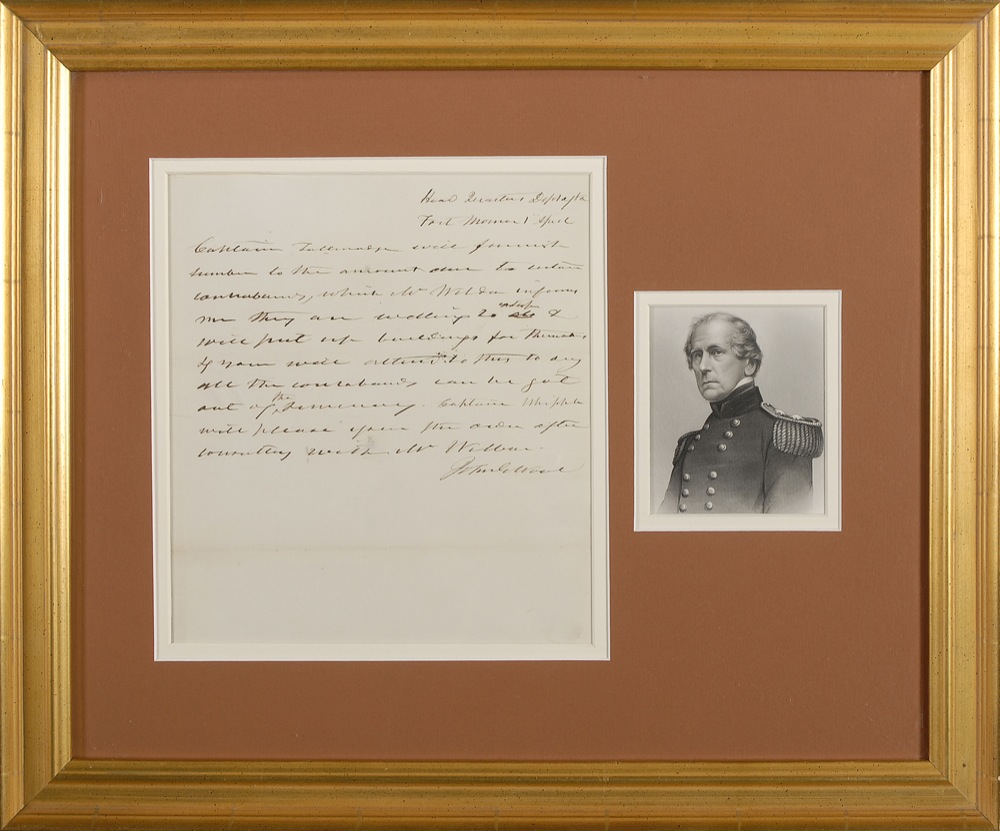 Head Quarters Dept of Va
Fort Monroe 1 Sept
Captain Tallmadge will furnish
lumber to the amount due to certain
contrabands, which Mr Wilder informs
me they are willing to accept &
will put up buildings for themselves
If you will attend to this to day
all the contrabands can be got
out of the Seminary. Captain Whipple
will please give the order after
consulting with Mr Wilder.
John E Wool